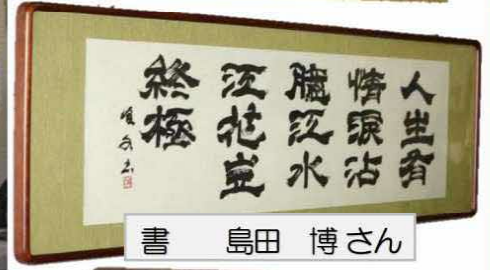 人生有
情淚沾
臆江水
江花豈
終極
書　島田　博さん